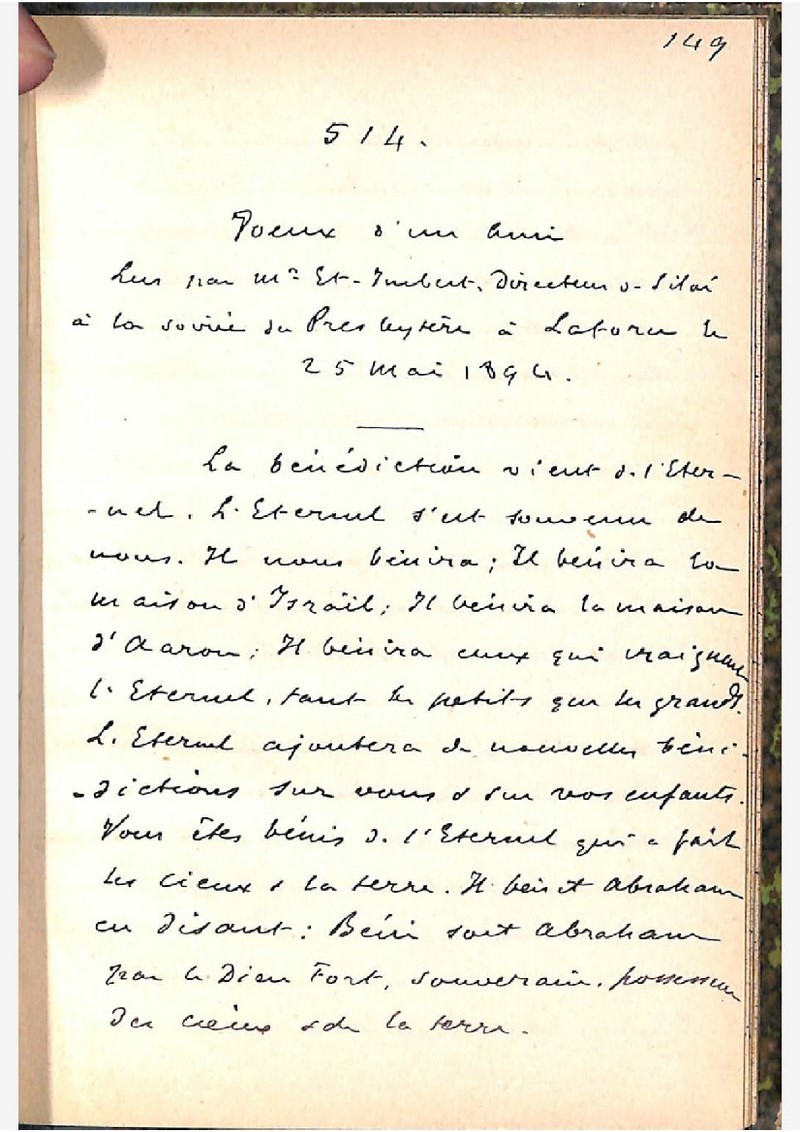 149
514.
Voeux d'un Ami
Lus par Mr Et-Imbert. Directeur de Siloé
à la soirée du Presbytère à Laforce le
25 Mai 1894.
La bénédiction vient de l'Eter-
-nel. L'Eternel s'est souvenu de
nous. Il nous bénira; Il bénira la
maison d'Israël; Il bénira la maison
d'Aaron; Il bénira ceux qui craignent
l'Eternel, tant les petits que les grands.
L'Eternel ajoutera de nouvelles béné-
-dictions sur vous & sur vos enfants.
Vous êtes bénis de l'Eternel qui a fait
les cieux & la terre. Il bénit Abraham
en disant: Béni soit Abraham
par le Dieu Fort, souverain, possesseur
des cieux & de la terre.